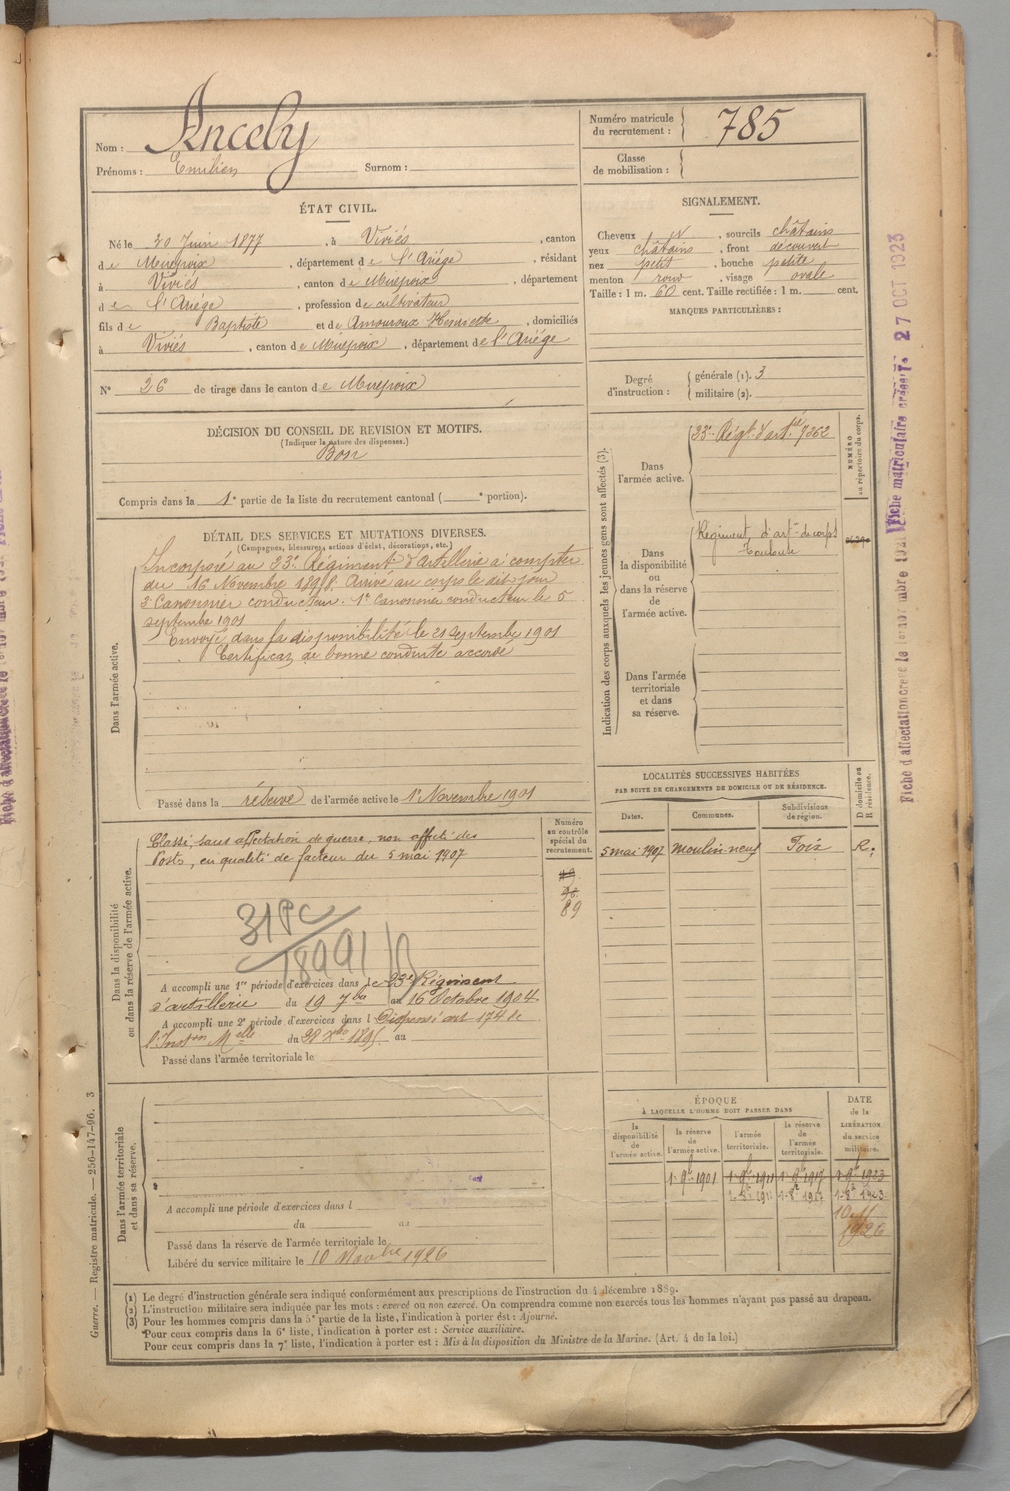 Nom : Anceby
Prénoms : Emilien Surnom :
Numéro matricule du recrutement : 785
Classe de mobilisation :
ÉTAT CIVIL.
Né le 20 Juin 1877, à Viviés, canton
de Mirepoix, département de l'Ariége, résidant
à Viviés, canton de Mirepoix, département
de l'Ariége, profession de cultivateur
fils de Baptiste et de Amouroux Henriette, domiciliés
à Viviés, canton de Mirepoix, département de l'Ariége
N° 26 de tirage dans le canton de Mirepoix
SIGNALEMENT.
Cheveux N, sourcils châtains
yeux châtains, front découvert
nez petit, bouche petite
menton rond, visage ovale
Taille : 1 m. 60 cent. Taille rectifiée : 1 m. cent.
MARQUES PARTICULIÈRES :
Degré d'instruction : générale (1). 3
militaire (2).
DÉCISION DU CONSEIL DE REVISION ET MOTIFS.
(Indiquer la nature des dispenses.)
Bon
Compris dans la 1e partie de la liste du recrutement cantonal ( e portion).
DÉTAIL DES SERVICES ET MUTATIONS DIVERSES.
(Campagnes, blessures, actions d'éclat, décorations, etc.)
Dans l'armée active.
Incorporé au 23e Régiment d'Artillerie à compter
du 16 Novembre 1898. Arrivé au corps le dit jour
2e Canonnier conducteur. 1er Canonnier conducteur le 5
septembre 1901
Envoyé dans la disponibilité le 21 septembre 1901
Certificat de bonne conduite accordé
Passé dans la réserve de l'armée active le 1er Novembre 1901
Indication des corps auxquels les jeunes gens sont affectés (3).
NUMÉRO au répertoire du corps.
Dans l'armée active.
23e Régt d'artie 7362
Dans la disponibilité ou dans la réserve de l'armée active.
Régiment d'arte de corps
Toulouse
Dans l'armée territoriale et dans sa réserve.
LOCALITÉS SUCCESSIVES HABITÉES
PAR SUITE DE CHANGEMENTS DE DOMICILE OU DE RÉSIDENCE.
Dates. Communes. Subdivisions de région. D domicile ou R résidence.
5 mai 1907 Moulin neuf Foix R.
Dans la disponibilité ou dans la réserve de l'armée active.
Numéro au contrôle spécial du recrutement.
Classé, sans affectation de guerre, non affecté des
Postes, en qualité de facteur du 5 mai 1907
89
A accompli une 1re période d'exercices dans le 23e Régiment
d'artillerie du 19 7bre au 16 Octobre 1904
A accompli une 2e période d'exercices dans l Dispensé art 174 de
l'Inston Melle du 28 Xbre 1895 au
Passé dans l'armée territoriale le
Dans l'armée territoriale et dans sa réserve.
A accompli une période d'exercices dans l
du au
Passé dans la réserve de l'armée territoriale le
Libéré du service militaire le 10 Novbre 1926
ÉPOQUE
À LAQUELLE L'HOMME DOIT PASSER DANS
DATE de la LIBÉRATION du service militaire.
la disponibilité de l'armée active. la réserve de l'armée active. l'armée territoriale. la réserve de l'armée territoriale.
1 9b 1901 1 9b 1911 1 9b 1917 1 9b 1923
1 8b 1911 1 8b 1917 1 8b 1923
10.11
1926
(1) Le degré d'instruction générale sera indiqué conformément aux prescriptions de l'instruction du 4 décembre 1889.
(2) L'instruction militaire sera indiquée par les mots : exercé ou non exercé. On comprendra comme non exercés tous les hommes n'ayant pas passé au drapeau.
(3) Pour les hommes compris dans la 5e partie de la liste, l'indication à porter est : Ajourné.
Pour ceux compris dans la 6e liste, l'indication à porter est : Service auxiliaire.
Pour ceux compris dans la 7e liste, l'indication à porter est : Mis à la disposition du Ministre de la Marine. (Art. 4 de la loi.)
Guerre. — Registre matricule. — 256-147-96. 3
27 OCT 1923
Fiche matriculaire
Fiche d'affectation